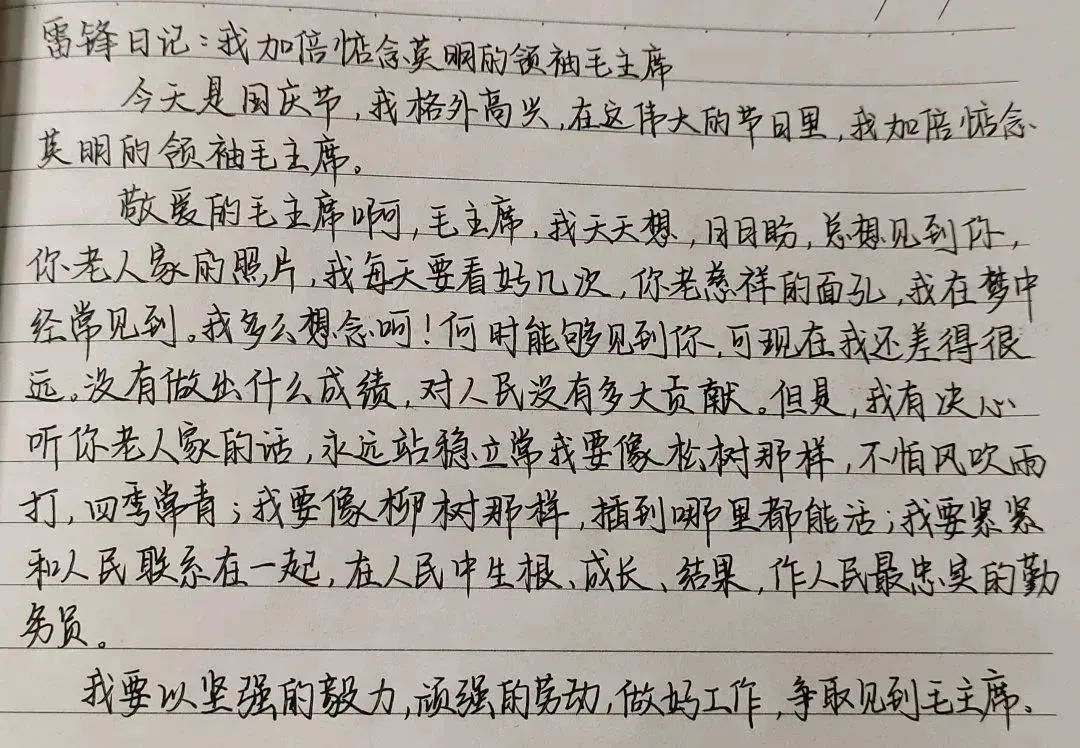 雷锋日记：我加倍惦念英明的领袖毛主席
今天是国庆节，我格外高兴，在这伟大的节日里，我加倍惦念
英明的领袖毛主席。
敬爱的毛主席啊，毛主席，我天天想，日日盼，总想见到你，
你老人家的照片，我每天要看好几次，你老慈祥的面孔，我在梦中
经常见到。我多么想念呵！何时能够见到你，可现在我还差得很
远。没有做出什么成绩，对人民没有多大贡献。但是，我有决心
听你老人家的话，永远站稳立常我要像松树那样，不怕风吹雨
打，四季常青；我要像柳树那样，插到哪里都能活；我要紧紧
和人民联系在一起，在人民中生根、成长、结果，作人民最忠实的勤
务员。
我要以坚强的毅力，顽强的劳动，做好工作，争取见到毛主席。